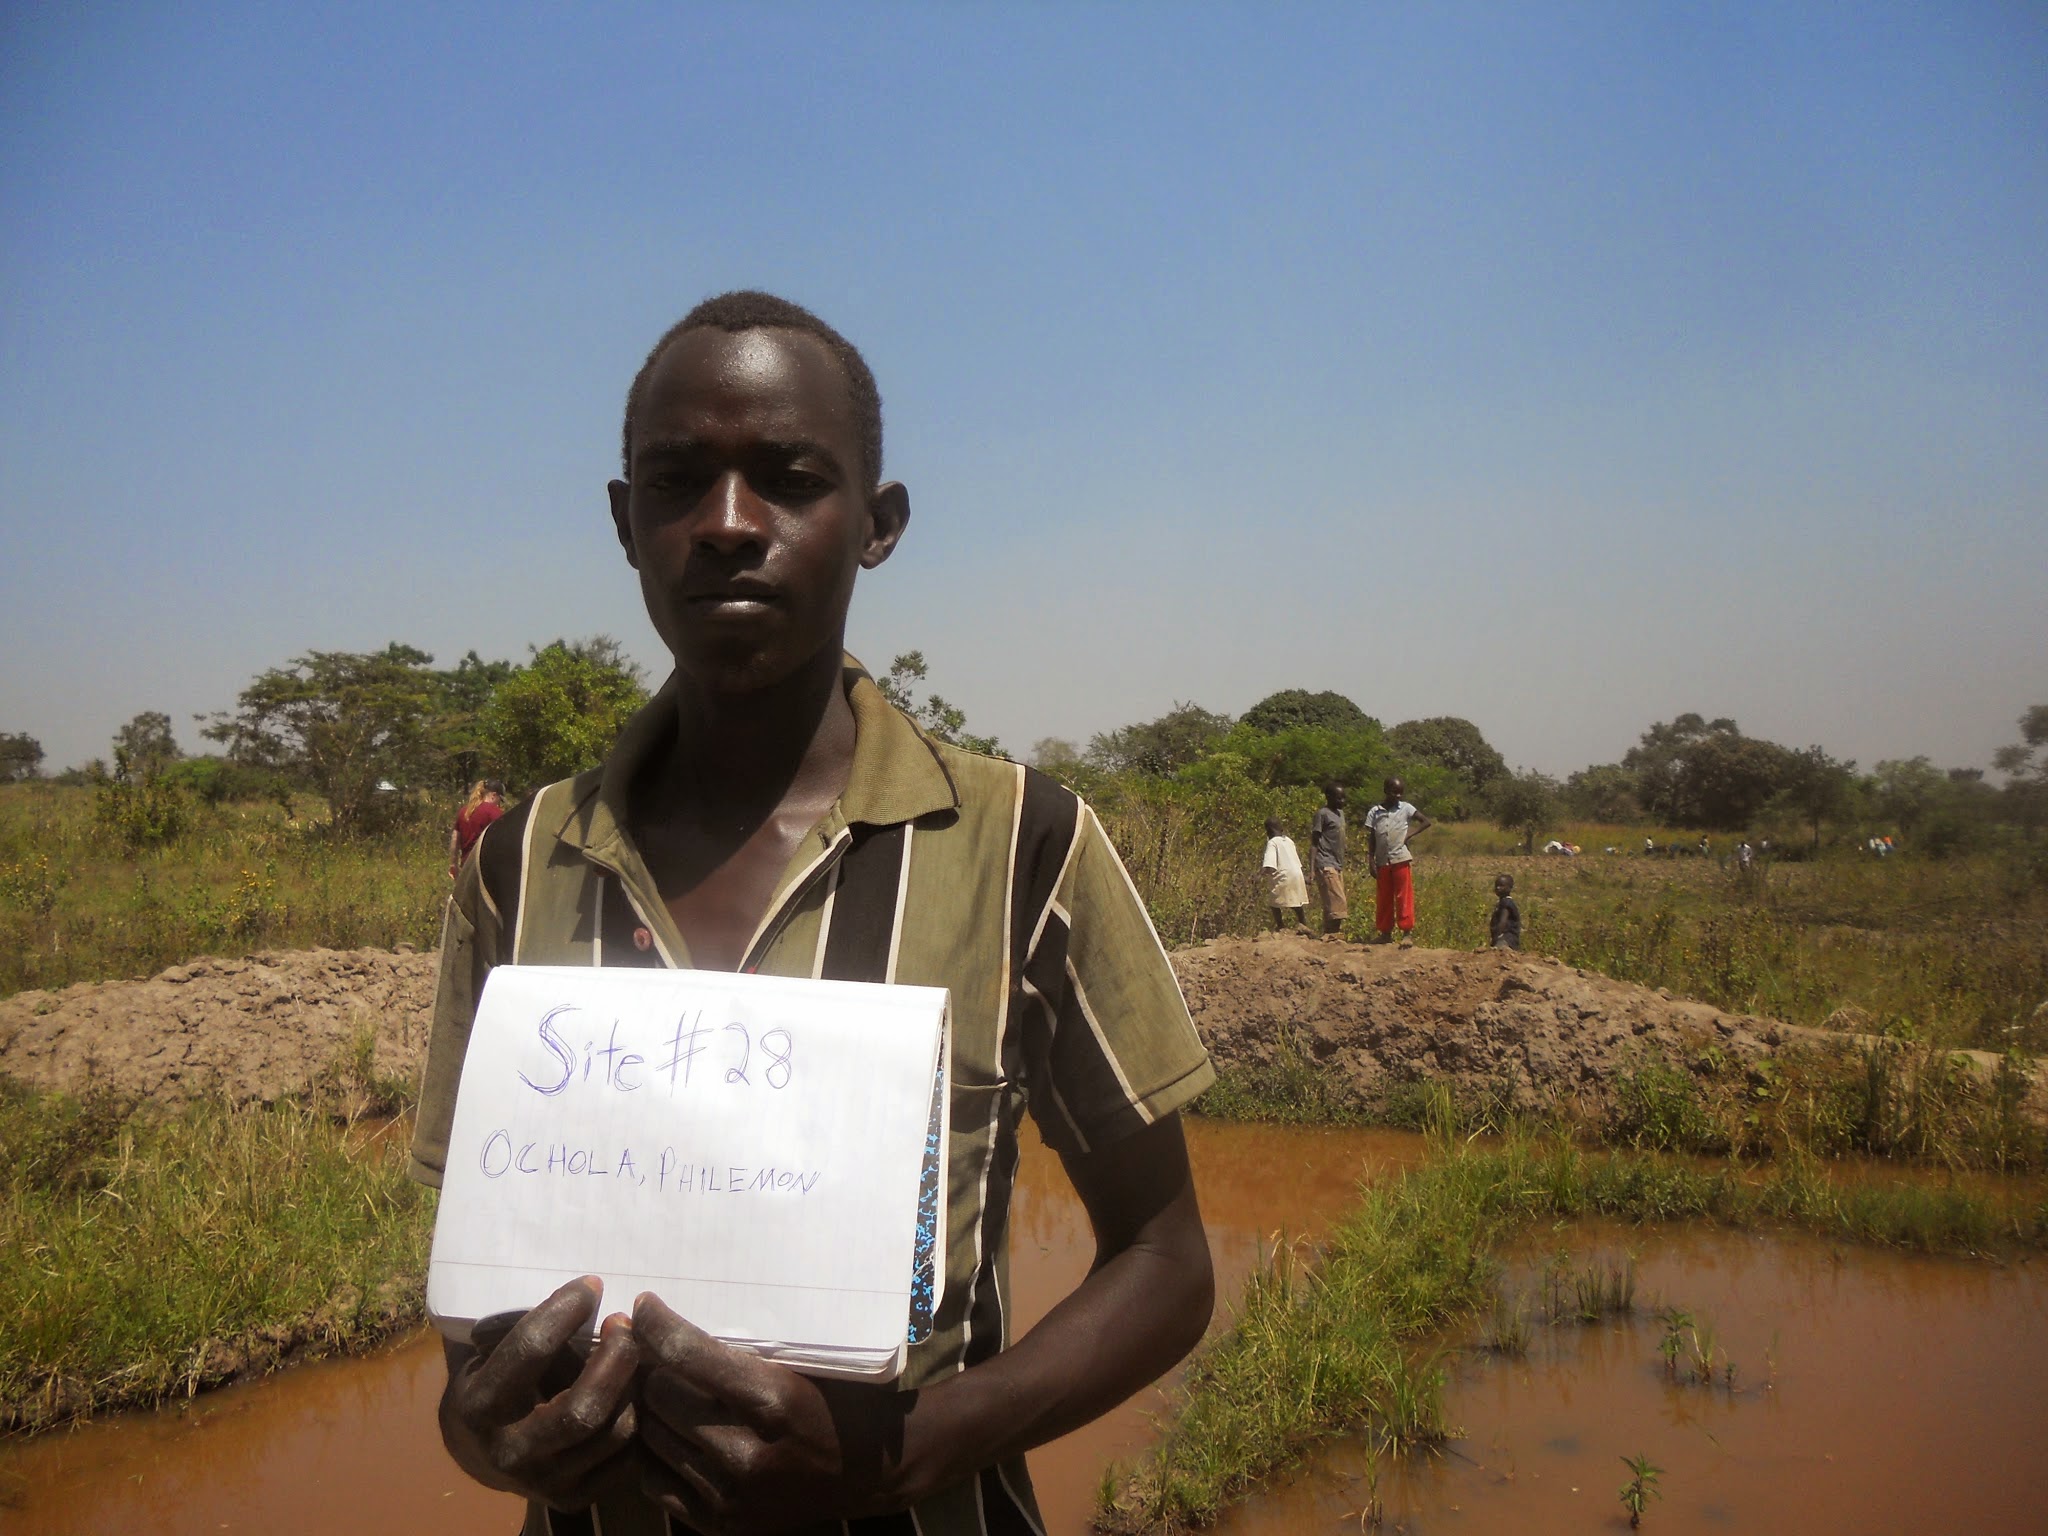 Site #28
OCHOLA, PHILEMON